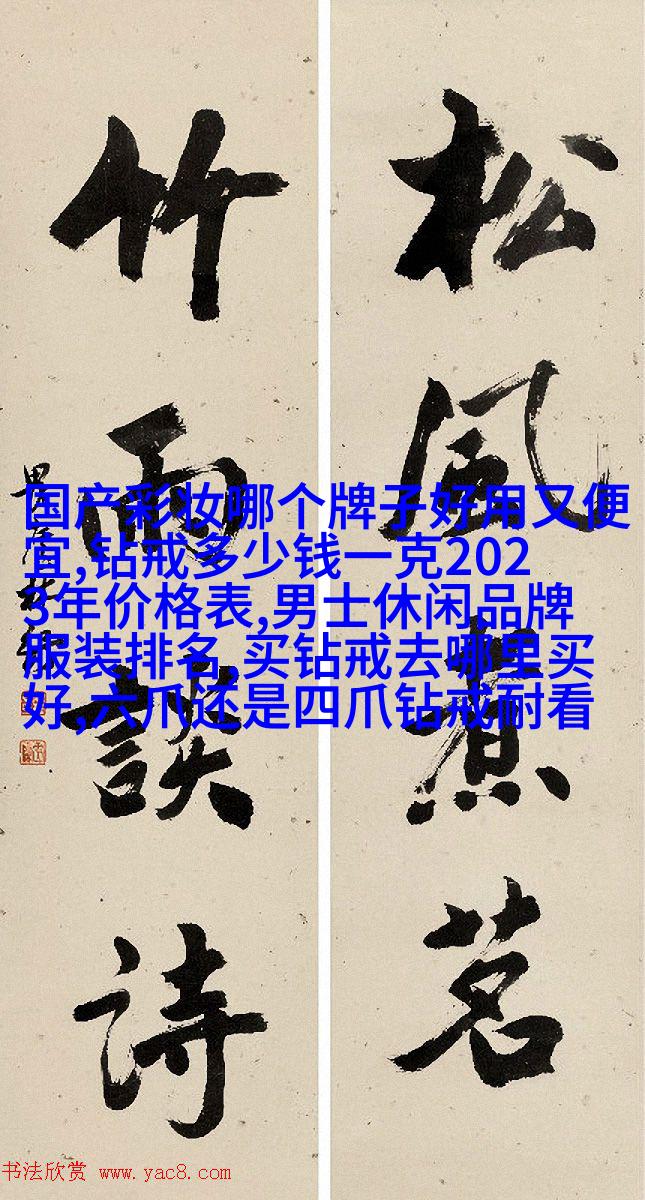 松風煮茗
竹雨談詩
国产彩妆哪个牌子好用又便
宜,钻戒多少钱一克202
3年价格表,男士休闲品牌
服装排名,买钻戒去哪里买
好,六爪还是四爪钻戒耐看
书法欣赏 www.yac8.com